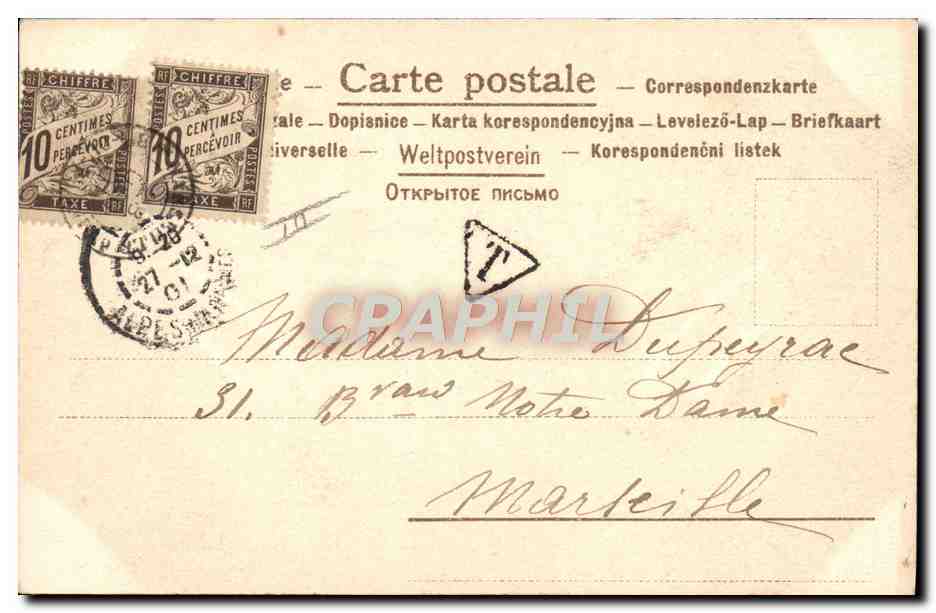 e – Carte postale – Correspondenzkarte
zale – Dopisnice – Karta korespondencyjna – Levelező-Lap – Briefkaart
iverselle – Weltpostverein – Korespondenční listek
Открытое письмо
RF CHIFFRE
POSTES
10 CENTIMES
À
PERCEVOIR
POSTES
TAXE RF
RF CHIFFRE
POSTES
10 CENTIMES
À
PERCEVOIR
POSTES
TAXE RF
27 -12
01
ALPES
T
CRAPHIL
Madame Dupeyrac
31. Bvard Notre Dame
Marseille